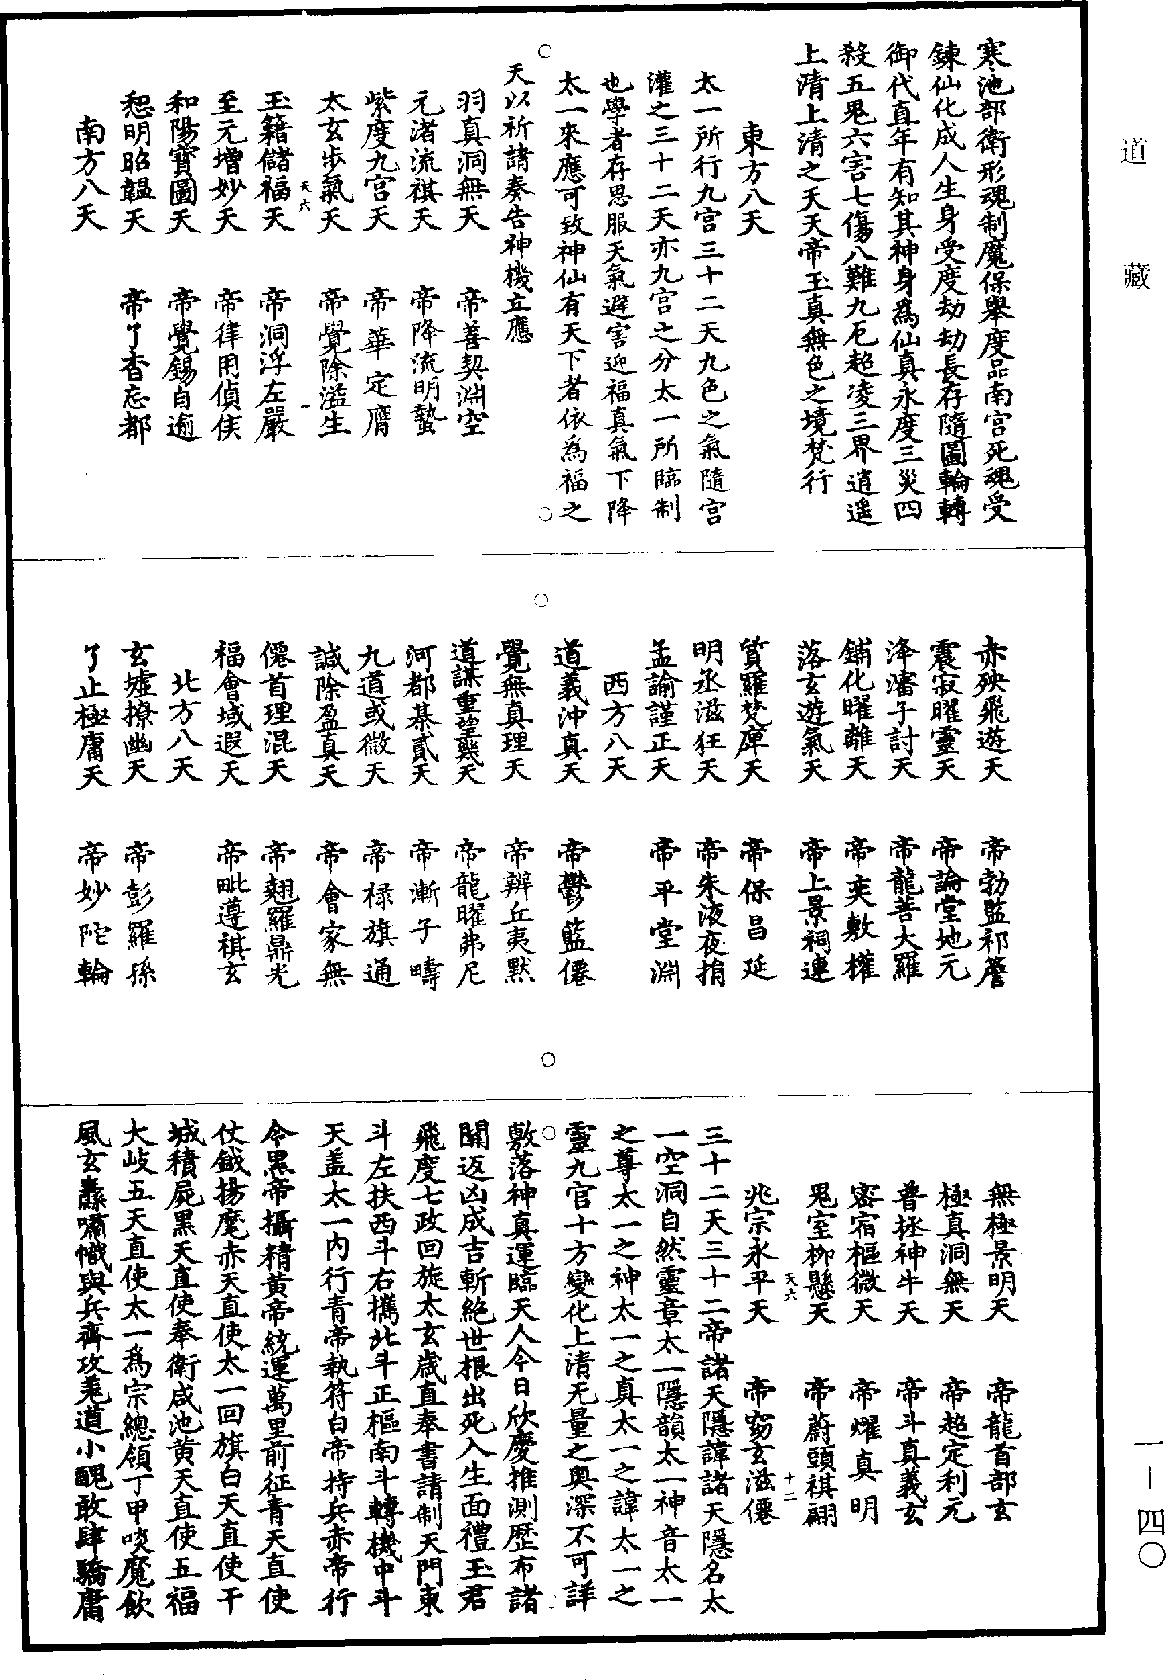 道藏
寒池部衛形魂制魔保舉度品南宮死魂受
鍊仙化成人生身受度劫劫長存隨圖輪轉
御代直年有知其神身為仙真永度三災四
殺五鬼六害七傷八難九厄超凌三界逍遙
上清上清之天天帝玉真無色之境梵行
東方八天
太一所行九宮三十二天九色之氣隨宮
灌之三十二天亦九宮之分太一所臨制
也學者存思服天氣避害迎福真氣下降
太一來應可致神仙有天下者依為福之
天以祈請奏告神機立應
羽真洞無天 帝善契淵空
元渚流祺天 帝降流明蟄
紫度九宮天 帝華定膺
太玄步氣天 帝覺除溢生
玉籍儲福天 天六 帝洞浮左嚴
至元增妙天 帝律用偵侯
和陽寶圖天 帝覺錫自逾
恕明昭韞天 帝了杳忘都
南方八天
赤殃飛遊天 帝勃監祁
震寂曜靈天 帝論堂地元
浲瀋子討天 帝龍菩大羅
鋪化曜離天 帝奕敷權
落玄遊氣天 帝上景祠連
質羅梵庫天 帝保昌延
明丞滋狂天 帝朱液夜捐
孟諭謹正天 帝平堂淵
西方八天
道義沖真天 帝鬱籃僊
覺無真理天 帝辨丘夷默
道謀重望幾天 帝龍曜弗尼
河都綦貳天 帝漸子疇
九道或微天 帝祿旗通
誠除盈真天 帝會家無
僊首理混天 帝翹羅鼎光
福會域遐天 帝毗遵祺玄
北方八天
玄墟撩幽天 帝彭羅孫
了止極庸天 帝妙陀輪
無極景明天 帝龍首部玄
極真洞無天 帝趍定利元
普拯神牛天 帝斗真義玄
密宿樞微天 帝燿真明
鬼室柳懸天 天六 帝蔚頭祺翩
兆宗永平天 帝窈玄滋僊 十二
三十二天三十二帝諸天隱諱諸天隱名太
一空洞自然靈章太一隱韻太一神音太一
之尊太一之神太一之真太一之諱太一之
靈九官十方變化上清无量之奧深不可詳
敷落神真運臨天人今日欣慶推測歷布諸
開返凶成吉斬絕世根出死入生面禮玉君
飛度七政回旋太玄歲直奉書請制天門東
斗左扶西斗右攜北斗正樞南斗轉機中斗
天盖太一内行青帝執符白帝持兵赤帝行
令黑帝攝精黃帝統運萬里前征青天直使
仗鉞揚麾赤天直使太一回旗白天直使干
城積屍黑天直使奉衛咸池黄天直使五福
大岐五天直使太一為宗總領丁甲啖魔飲
風玄纛嘯幟與兵齊攻鬼道小醜敢肆驕庸
一－四〇